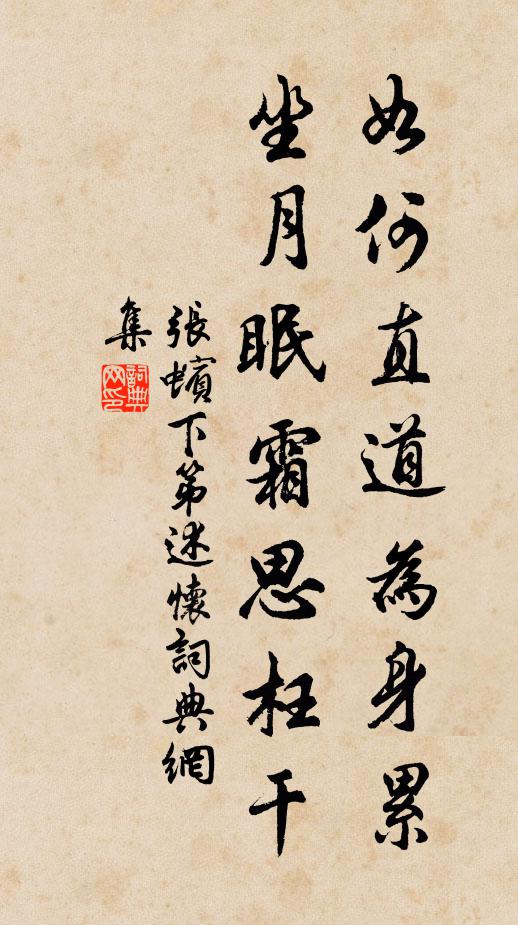 如何直道為身累
坐月眠霜思枉干
張蠙下第述懷詞典網
集
詞典網印